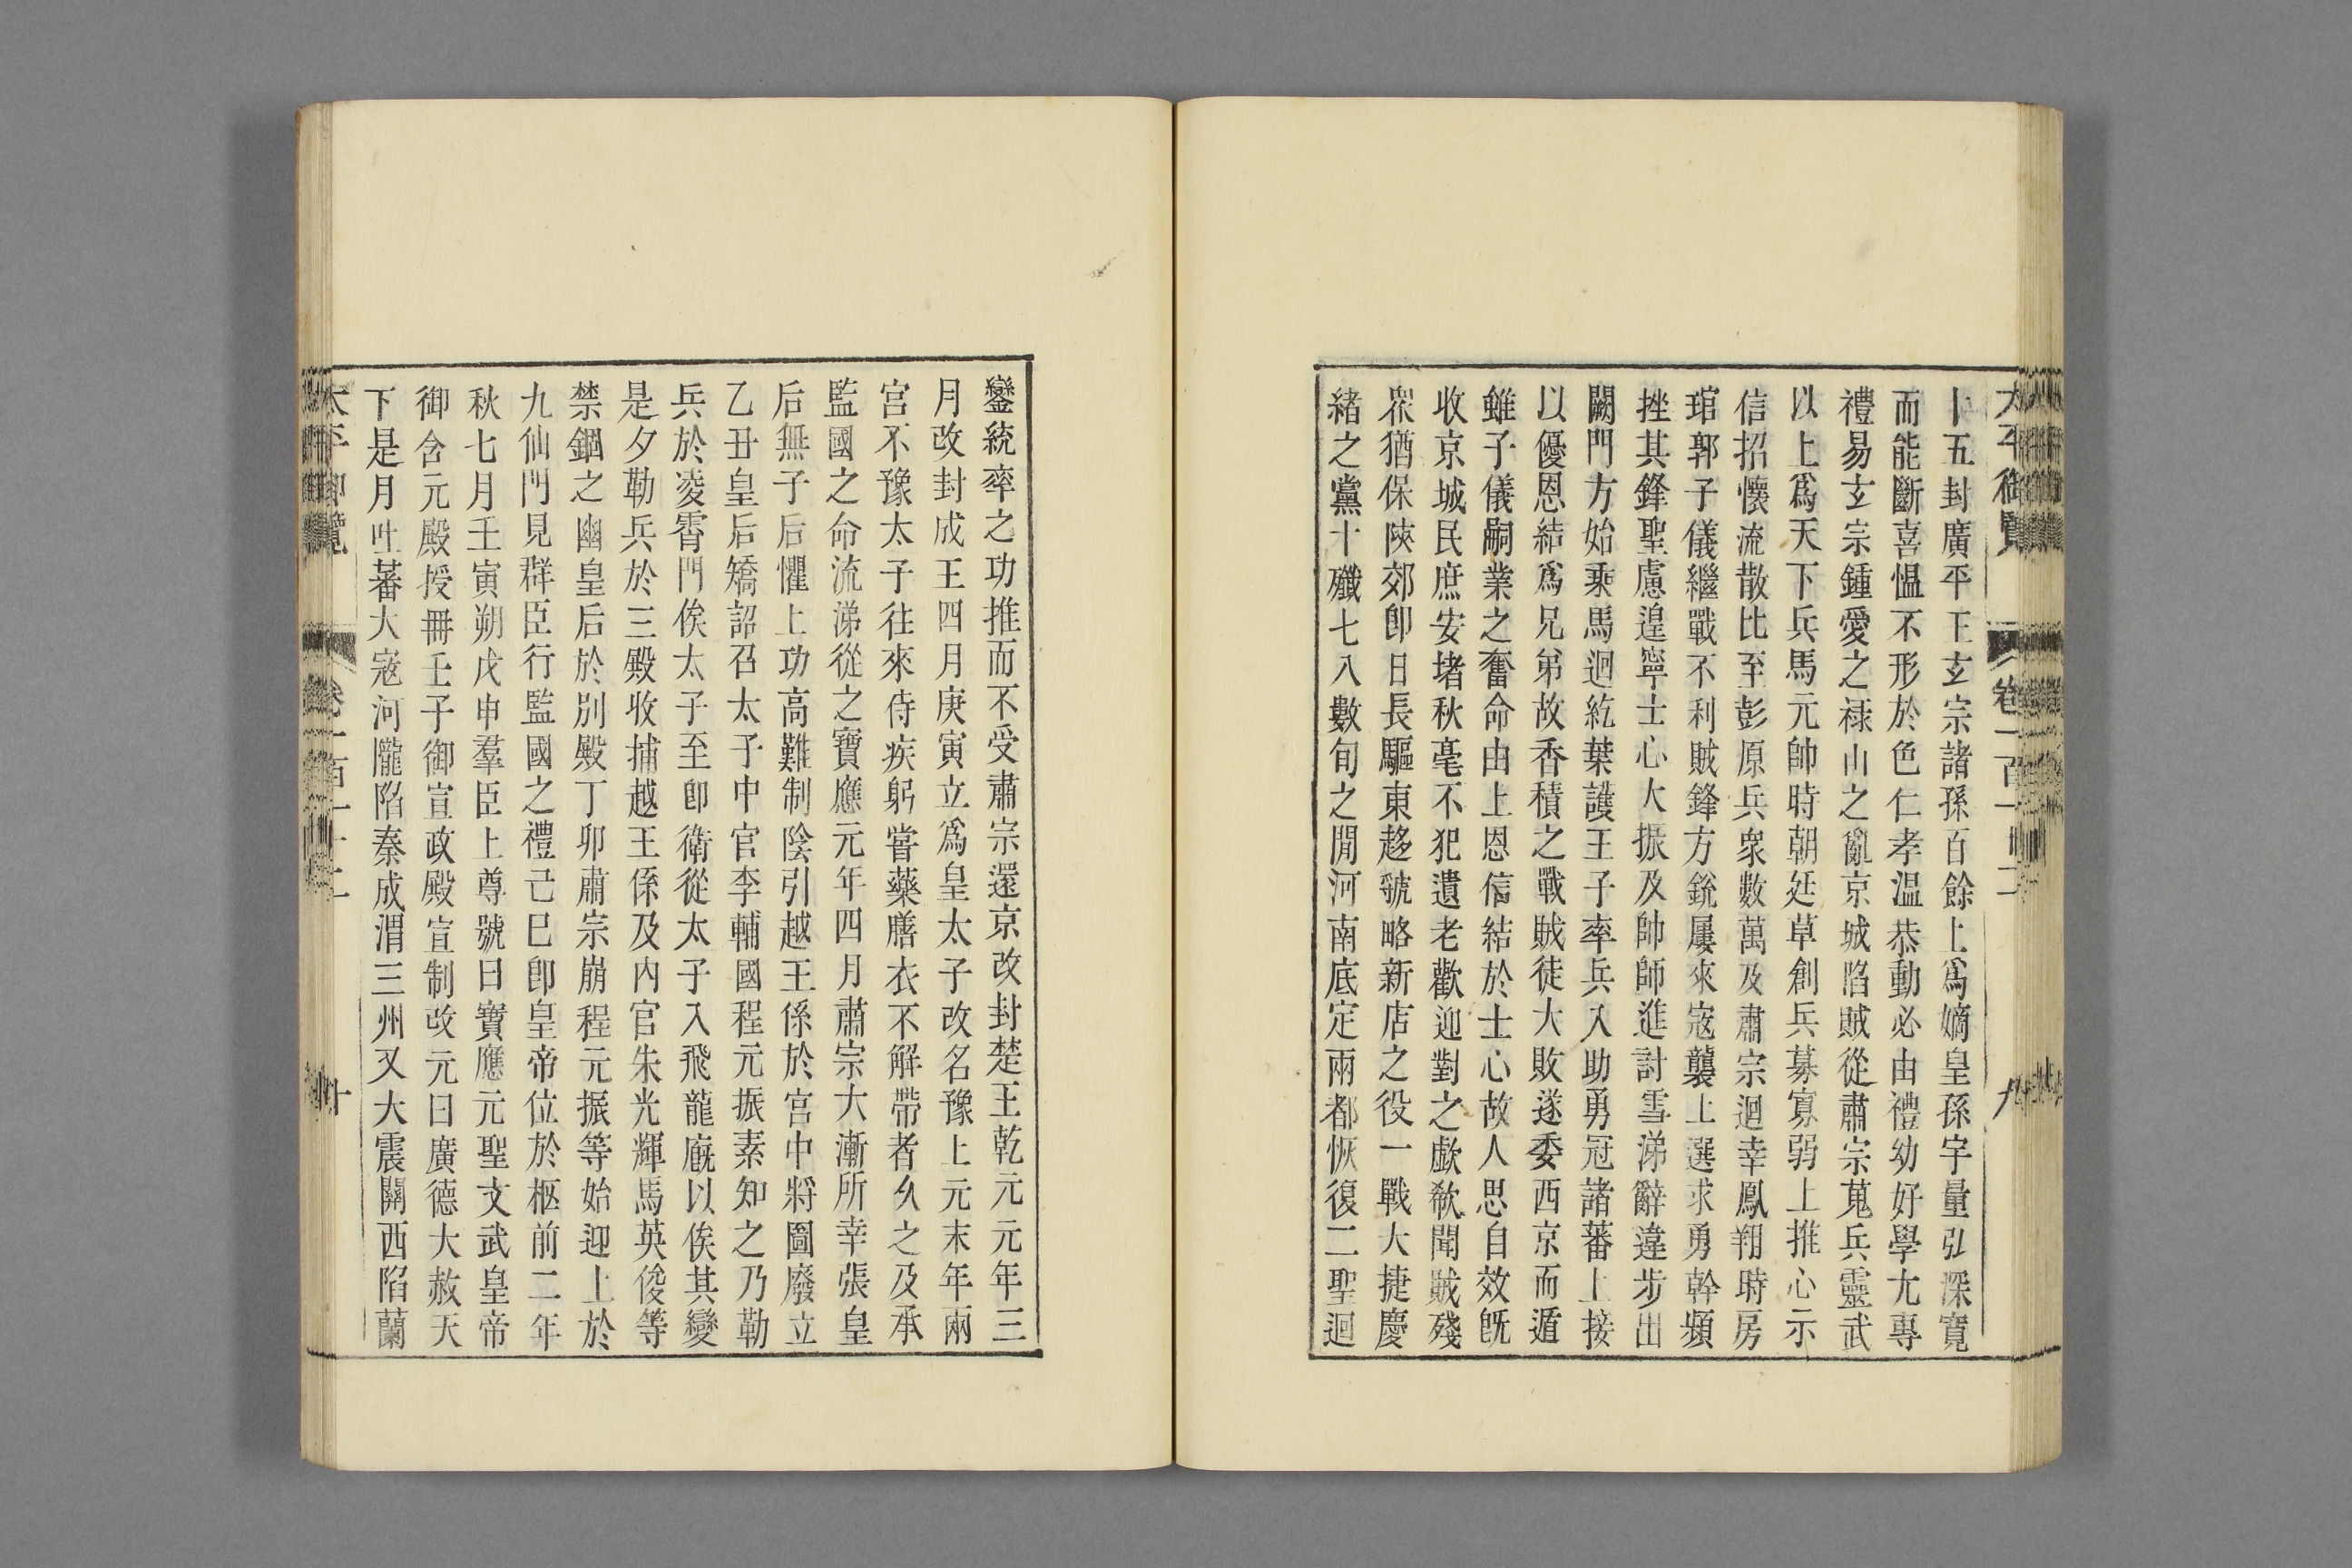 太平御覽 卷一百十二 九
十五封廣平王玄宗諸孫百餘上爲嫡皇孫宇量弘深寬
而能斷喜愠不形於色仁孝温恭動必由禮幼好學尤專
禮易玄宗鍾愛之禄山之亂京城陷賊從肅宗蒐兵靈武
以上爲天下兵馬元帥時朝廷草創兵募寡弱上推心示
信招懷流散比至彭原兵衆數萬及肅宗迴幸鳳翔時房
琯郭子儀繼戰不利賊鋒方銳屢來寇襲上選求勇幹頻
挫其鋒聖慮遑寧士心大振及帥師進討雪涕辭違步出
闕門方始乘馬迴紇葉護王子率兵入助勇冠諸蕃上接
以優恩結爲兄弟故香積之戰賊徒大敗遂委西京而遁
雖子儀嗣業之奮命由上恩信結於士心故人思自效既
收京城民庶安堵秋毫不犯遺老歡迎對之歔欷聞賊殘
衆猶保陝郊卽日長驅東趍虢略新店之役一戰大捷慶
緒之黨十殲七八數旬之閒河南底定兩都恢復二聖迴
鑾統率之功推而不受肅宗還京改封楚王乾元元年三
月改封成王四月庚寅立爲皇太子改名豫上元末年兩
宫不豫太子往來侍疾躬嘗藥膳衣不解帶者久之及承
監國之命流涕從之寶應元年四月肅宗大漸所幸張皇
后無子后懼上功高難制陰引越王係於宮中將圖廢立
乙丑皇后矯詔召太子中官李輔國程元振素知之乃勒
兵於凌霄門俟太子至卽衛從太子入飛龍廐以俟其變
是夕勒兵於三殿收捕越王係及內官朱光輝馬英俊等
禁錮之幽皇后於別殿丁卯肅宗崩程元振等始迎上於
九仙門見群臣行監國之禮己巳卽皇帝位於柩前二年
秋七月壬寅朔戊申羣臣上尊號曰寶應元聖文武皇帝
御含元殿授冊壬子御宣政殿宣制改元曰廣德大赦天
下是月吐蕃大寇河隴陷秦成渭三州又大震關西陷蘭
太平御覽 卷一百十二 十